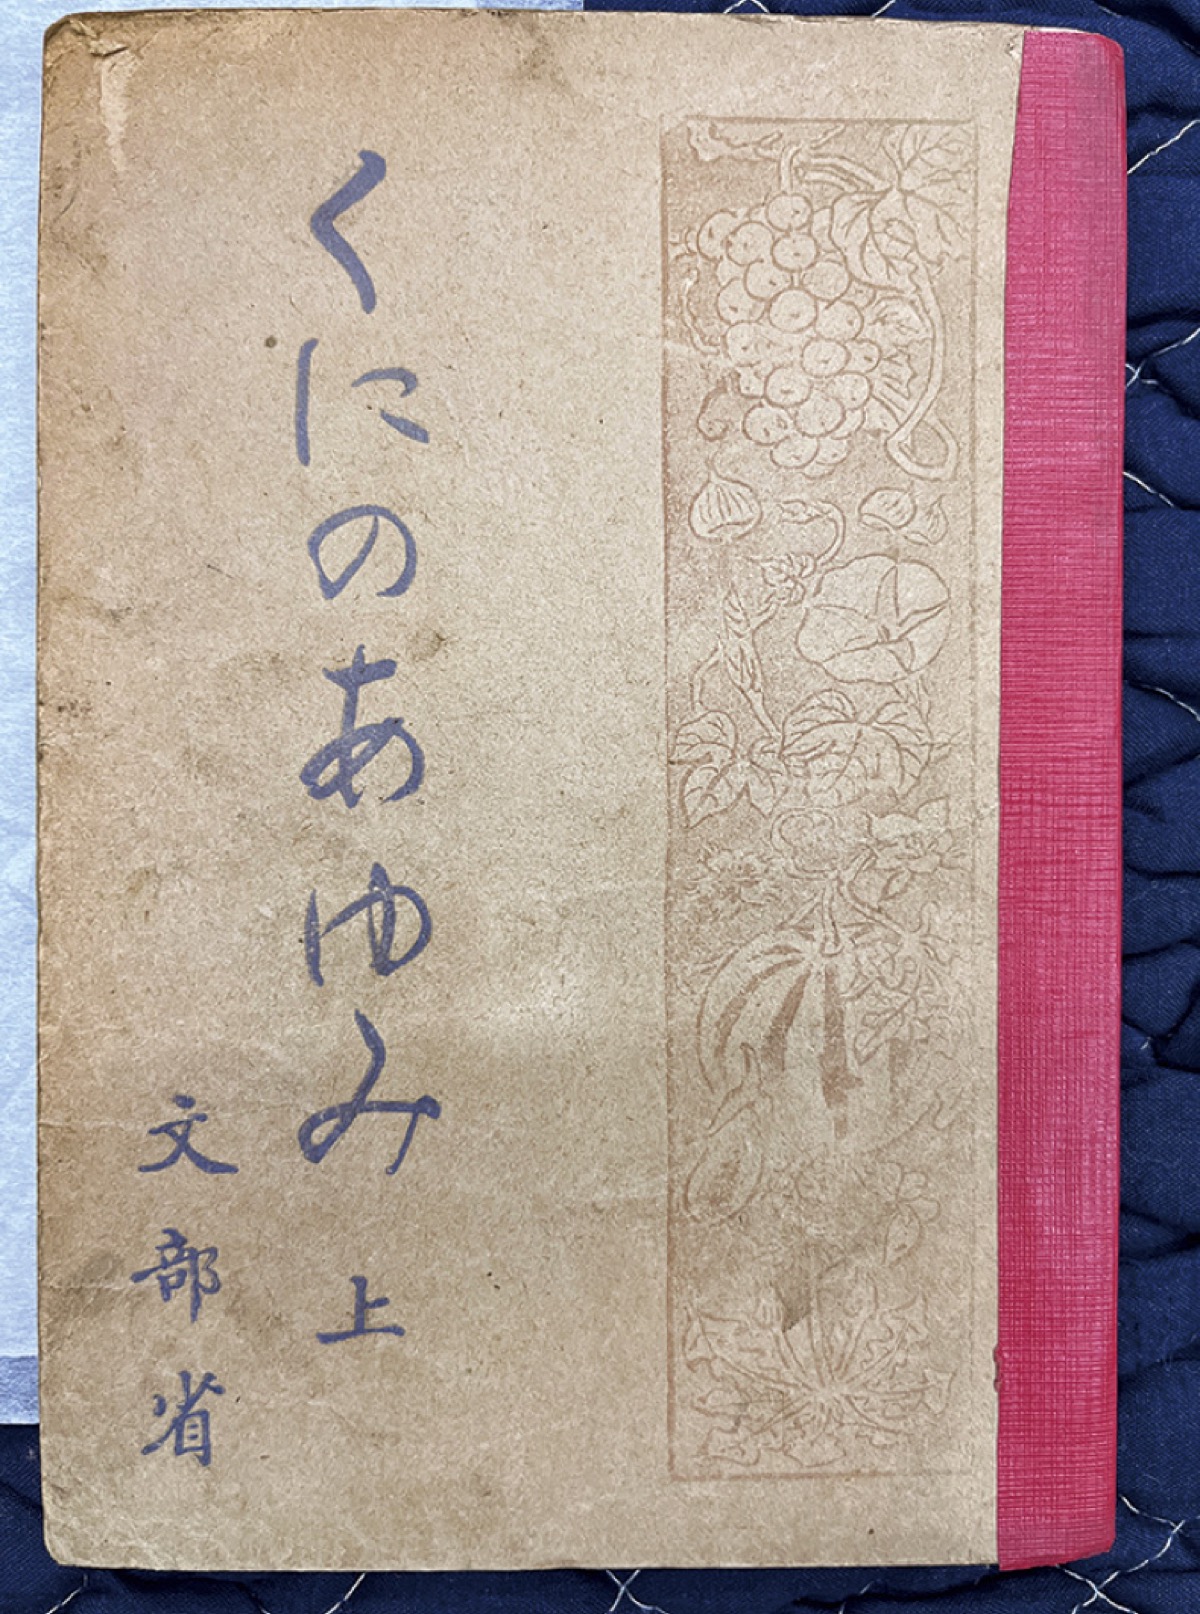 くにのあゆみ 上
文部省